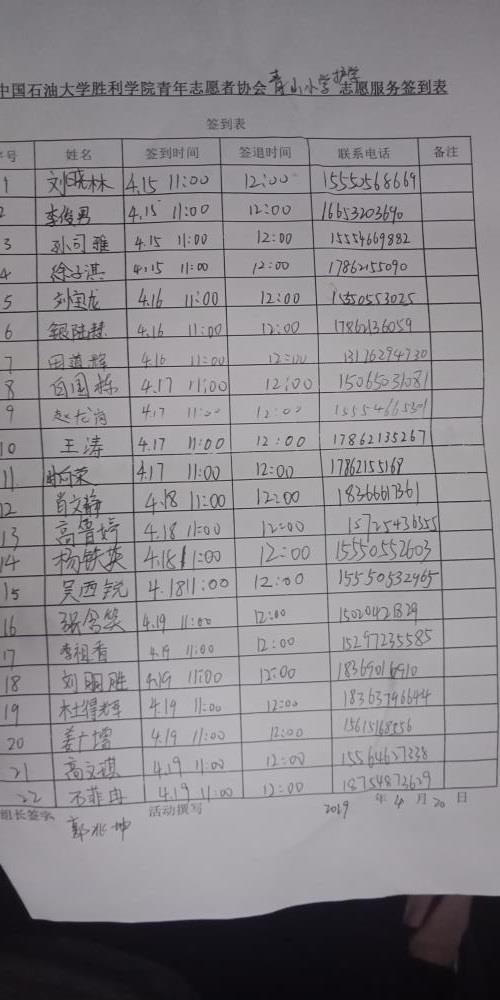 中国石油大学胜利学院青年志愿者协会青山小学护学志愿服务签到表
签到表
序号 姓名 签到时间 签退时间 联系电话 备注
1 刘晓林 4.15 11:00 12:00 15550568669
2 李俊男 4.15 11:00 12:00 16653203690
3 孙可雅 4.15 11:00 12:00 15554669882
4 徐子淇 4.15 11:00 12:00 17862155090
5 刘宝龙 4.16 11:00 12:00 15550553025
6 银陆慧 4.16 11:00 12:00 17862136059
7 田道辉 4.16 11:00 12:00 13176294730
8 白国栋 4.17 11:00 12:00 15065031081
9 4.17 11:00 12:00 15554665301
10 王涛 4.17 11:00 12:00 17862135267
11 4.17 11:00 12:00 17862155168
12 肖文静 4.18 11:00 12:00 18366617361
13 高鲁婷 4.18 11:00 12:00 15725436355
14 杨铁英 4.18 11:00 12:00 15550552603
15 吴西锐 4.18 11:00 12:00 15550532965
16 张含笑 4.19 11:00 12:00 15020421829
17 李祖香 4.19 11:00 12:00 15297235585
18 刘明胜 4.19 11:00 12:00 18369016910
19 杜得辉 4.19 11:00 12:00 18363796644
20 姜广增 4.19 11:00 12:00 15615168556
21 高文琪 4.19 11:00 12:00 15564627338
22 不菲冉 4.19 11:00 12:00 18754873629
组长签字 郭兆坤 活动撰写 2019 年 4 月 20 日